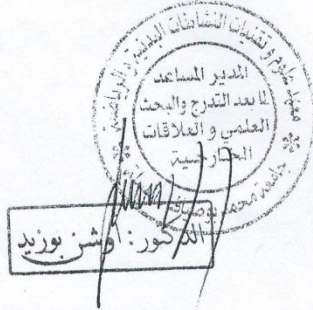 معهد علوم و تقنيات النشاطات البدنية و الرياضية
المدير المساعد
لما بعد التدرج والبحث
العلمي و العلاقات
الخارجية
جامعة محمد بوضياف
الدكتور: أوشن بوزيد